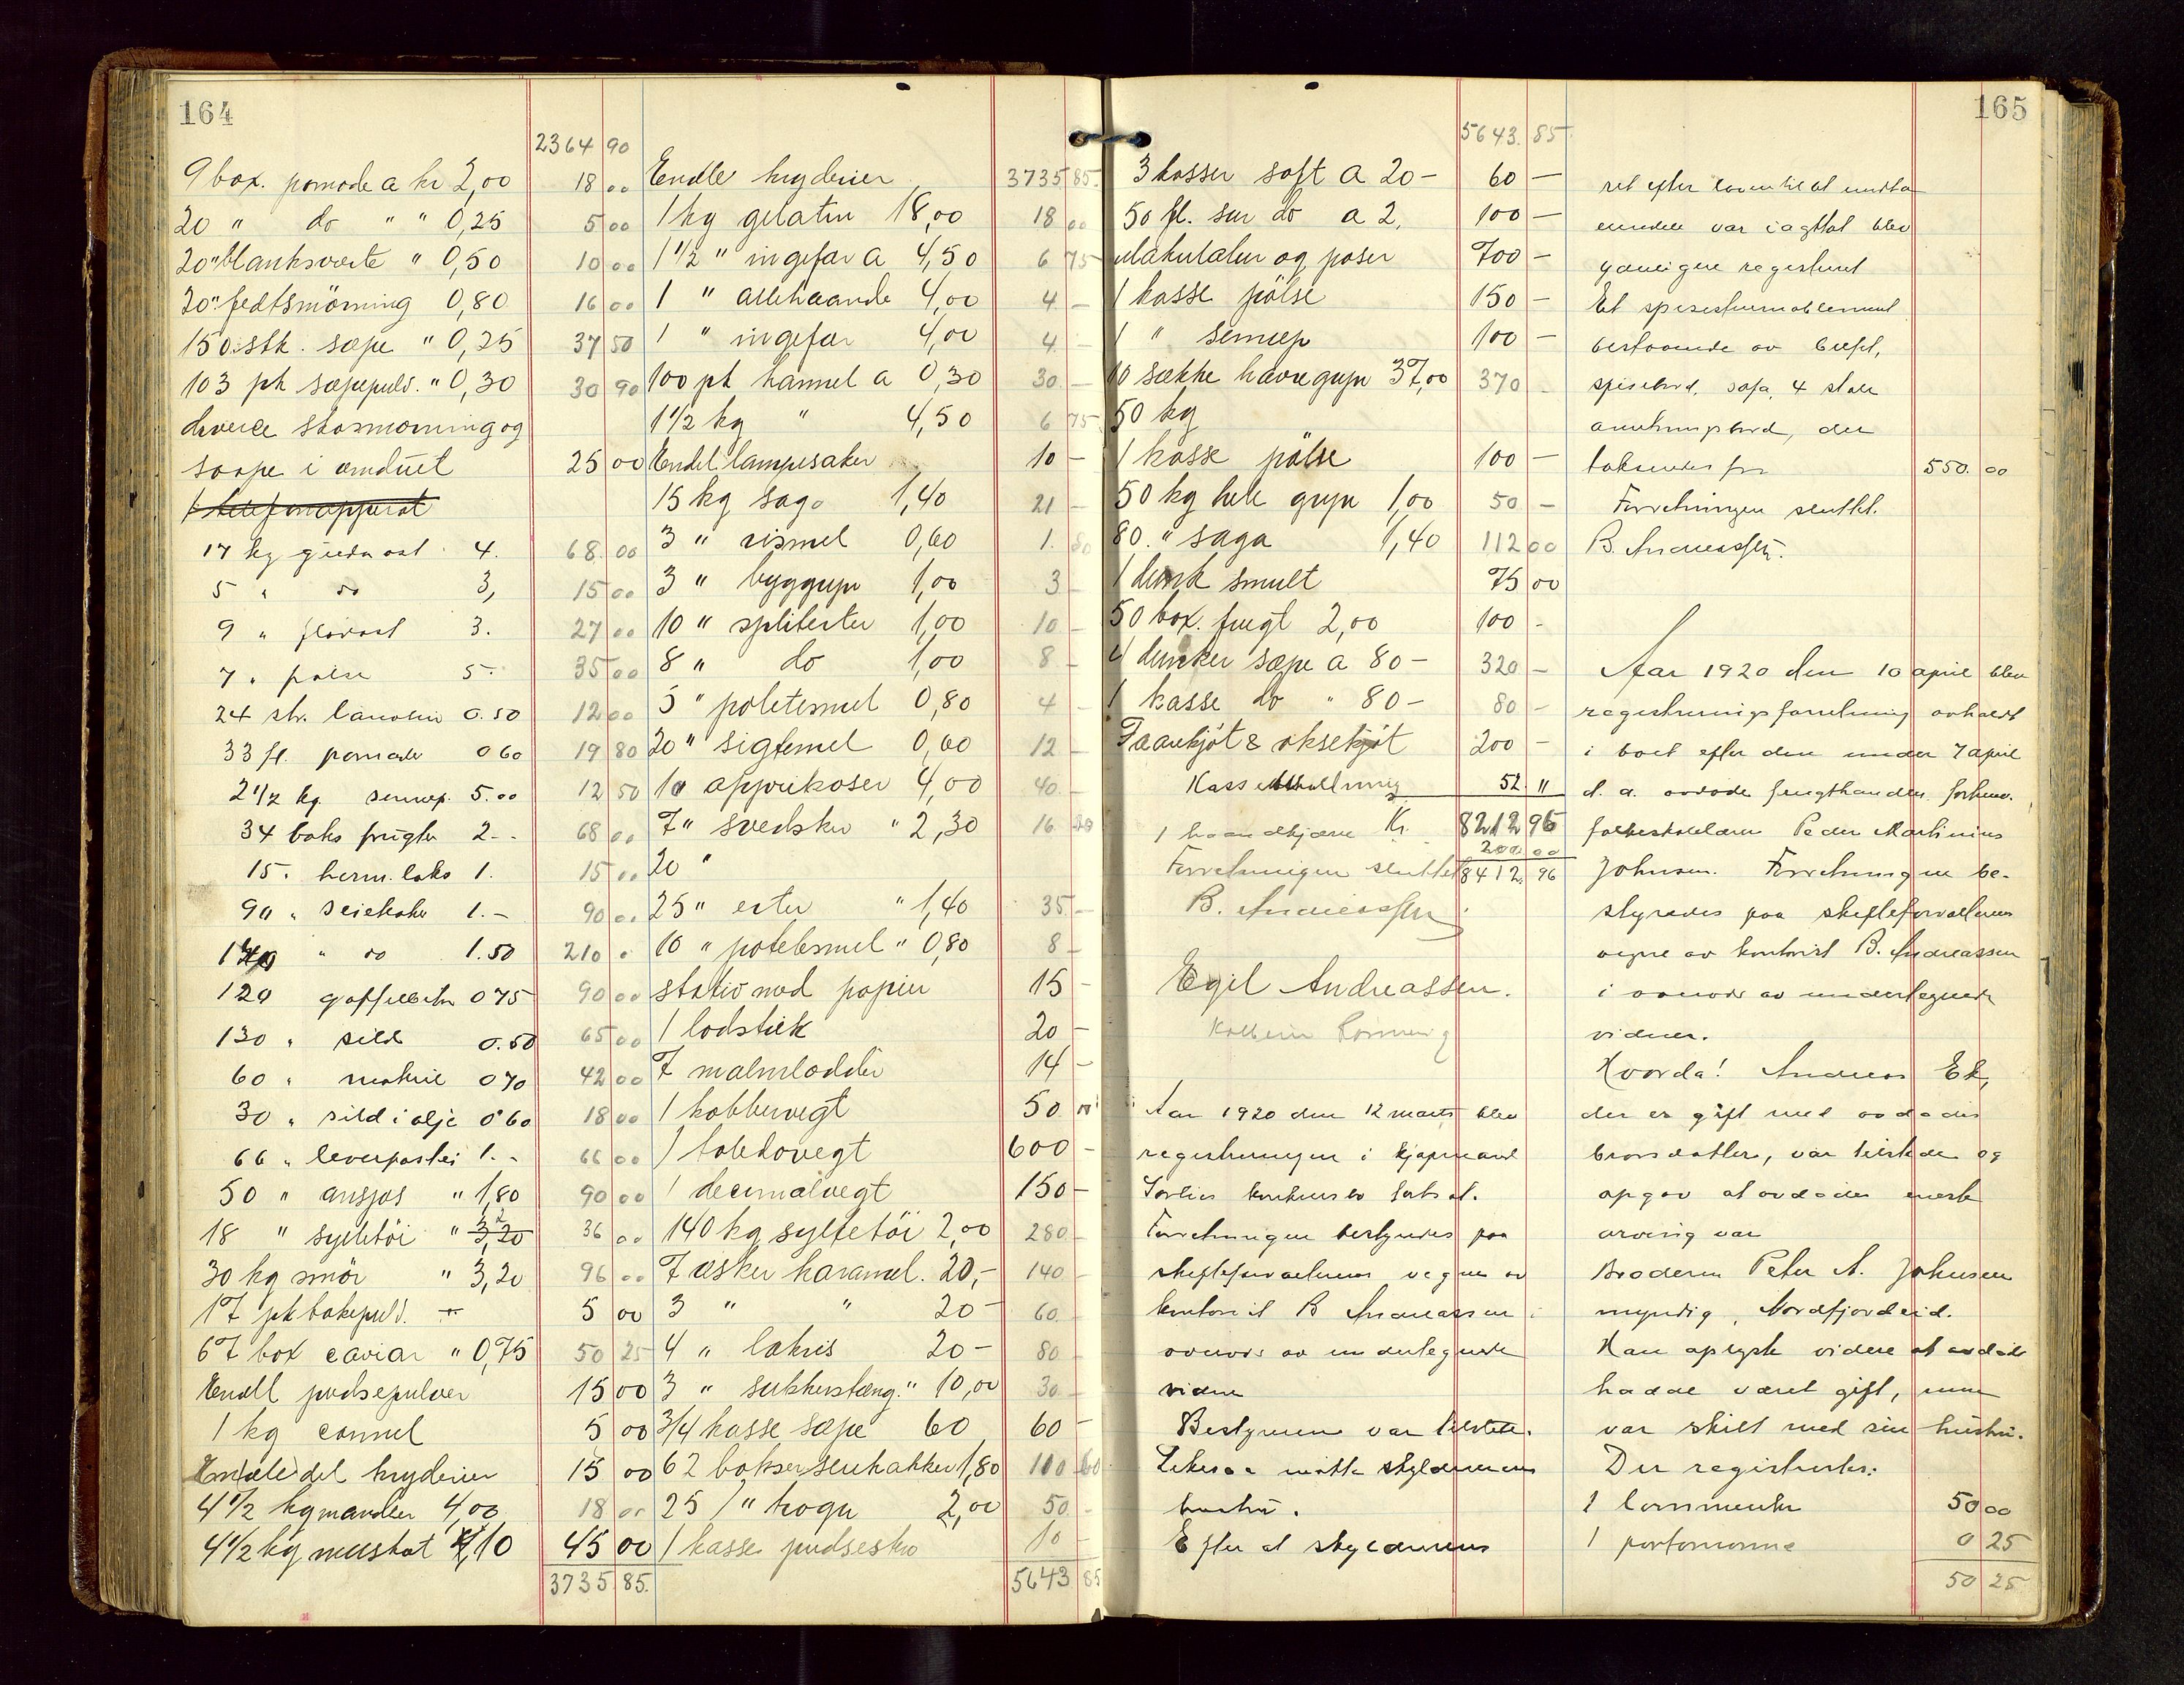 164
2364 90
9 box. pomade a kr 2,00 18 00
20 " do " " 0,25 5 00
20 " blanksverte " 0,50 10 00
20 " fedtsmörning 0,80 16 00
150 stk. sæpe " 0,25 37 50
103 pk sæpepulv. " 0,30 30 90
diverse skosmörning og
saape i vinduet 25 00
1 telefonapparat
17 kg gueda ost 4. 68 00
5 " do 3, 15 00
9 " flödost 3. 27 00
7 " pølse 5- 35 00
24 stk. lanolin 0.50 12 00
33 fl. pomade 0 60 19 80
2 1/2 kg. sennep. 5.00 12 50
34 boks frugter 2-- 68 00
15. herm. laks 1. 15 00
90 " seiekaker 1.- 90 00
140 " do 1.50 210 0
120 gaffelbiter 0 75 90 00
130 " sild 0.50 65 00
60 " makrel 0 70 42 00
30 " sild i olje 0 60 18 00
66 " leverpostei 1.- 66 00
50 " ansjos " 1,80 90 00
18 " sylletöi " 3,20 2 36 00
30 kg smör " 3,20 96 00
17 pk bakepulv. 5 00
67 box caviar " 0,75 50 25
Endel pudsepulver 15 00
1 kg cannel 5 00
En hele del kryderier 15 00
4 1/2 kg mandler 4,00 18 00
4 1/2 kg muskat 10 45 00
3735 85.
Endel kryderier 3735 85.
1 kg gelatin 18,00 18 00
1 1/2 " ingefær a 4,50 6 75
1 " allehaande 4,00 4 -
1 " ingefær 4,00 4. -
100 pk kannel a 0,30 30. -
1 1/2 kg " 4,50 6 75
Endel lampesaker 10 -
15 kg sago 1,40 21 -
3 " rismel 0,60 1. 80
3 " byggryn 1,00 3 -
10 " spliterter 1,00 10 -
8 " do 1,00 8 -
5 " potetesmel 0,80 4 -
20 " sigtemel 0,60 12 -
10 apprikoser 4,00 40. -
7 " svedsker " 2,30 16
20 "
25 " erter " 1,40 35. -
10 " potetesmel " 0,80 8 -
stativ med papir 15 -
1 lodstik 20 -
7 malmlodder 14 -
1 kobbervegt 50 "
1 toledovegt 600 -
1 decimalvegt 150 -
140 kg syltetöi 2,00 280 -
7 æsker karamel. 20,- 140 -
3 " " 20- 60. -
4 " lakris 20- 80 -
3 " sukkerstang. " 10,00 30 -
3/4 kasse sæpe 60 60 -
62 bokser seikakker 1,80 110 60
25 1/ " rogn 2,00 50. -
1 kasse pudsesko 10 -
5643 85
165
5643. 85
3 kasser saft a 20- 60 -
50 fl. sur do a 2. 100 -
Makulatur og poser 700 -
1 kasse pölse 150 -
1 " sennep 100 -
10 sække havregryn 37,00 370 -
50 kg
1 kasse pölse 100 -
50 kg hele gryn 1,00 50 -
80. " saga 1,40 112 00
1 dunk smult 75 00
50 box. frugt 2,00 100 -
4 dunker sæpe a 80- 320 -
1 kasse do " 80- 80 -
Faarekjöt & oksekjöt 200 -
Kassebeholdning 52. "
Kr. 8212 96
1 haandkjærre 200 00
Forretningen sluttet 8412. 96
B. Andreassen
Egil Andreassen.
Aar 1920 den 12 marts blev
registreringen i kjøpmand
konkursbo fortsat.
Forretningen bestyredes paa
skifteforvalterens vegne av
kontorist B Andreassen i
overvær av undertegnede
vidner
Bestyreren var tilstede.
Likesaa møtte skyldnerens
hustru.
Efter at skyldnerens
ret efter loven til at undta
eiendele var iagttat blev
ydterligere registreret
Et spisestuemøblement
bestaaende av bufet,
spisebord, sofa, 4 stole
anretningsbord, der
takseredes for 550. 00
Forretningen sluttet.
B. Andreassen.
Aar 1920 den 10 april blev
registreringsforretning avholdt
i boet efter den under 7 april
d. a. avdøde frugthandler forhenv.
folkeskolelærer Peder Martinius
Johnsen. Forretningen be-
styredes paa skifteforvalterens
vegne av kontorist B. Andreassen
i overvær av undertegnede
vidner.
Hvorda! Andreas Ek,
der er gift med avdødes
brorsdatter, var tilstede og
opgav at avdødes eneste
arving var
Broderen Peter A. Johnsen
myndig, Nordfjordeid.
Han oplyste videre at avdøde
hadde været gift, men
var skilt med sin hustru.
Der registrertes:
1 lommeuhr 50 00
1 portemonnæ 0 25
50 25